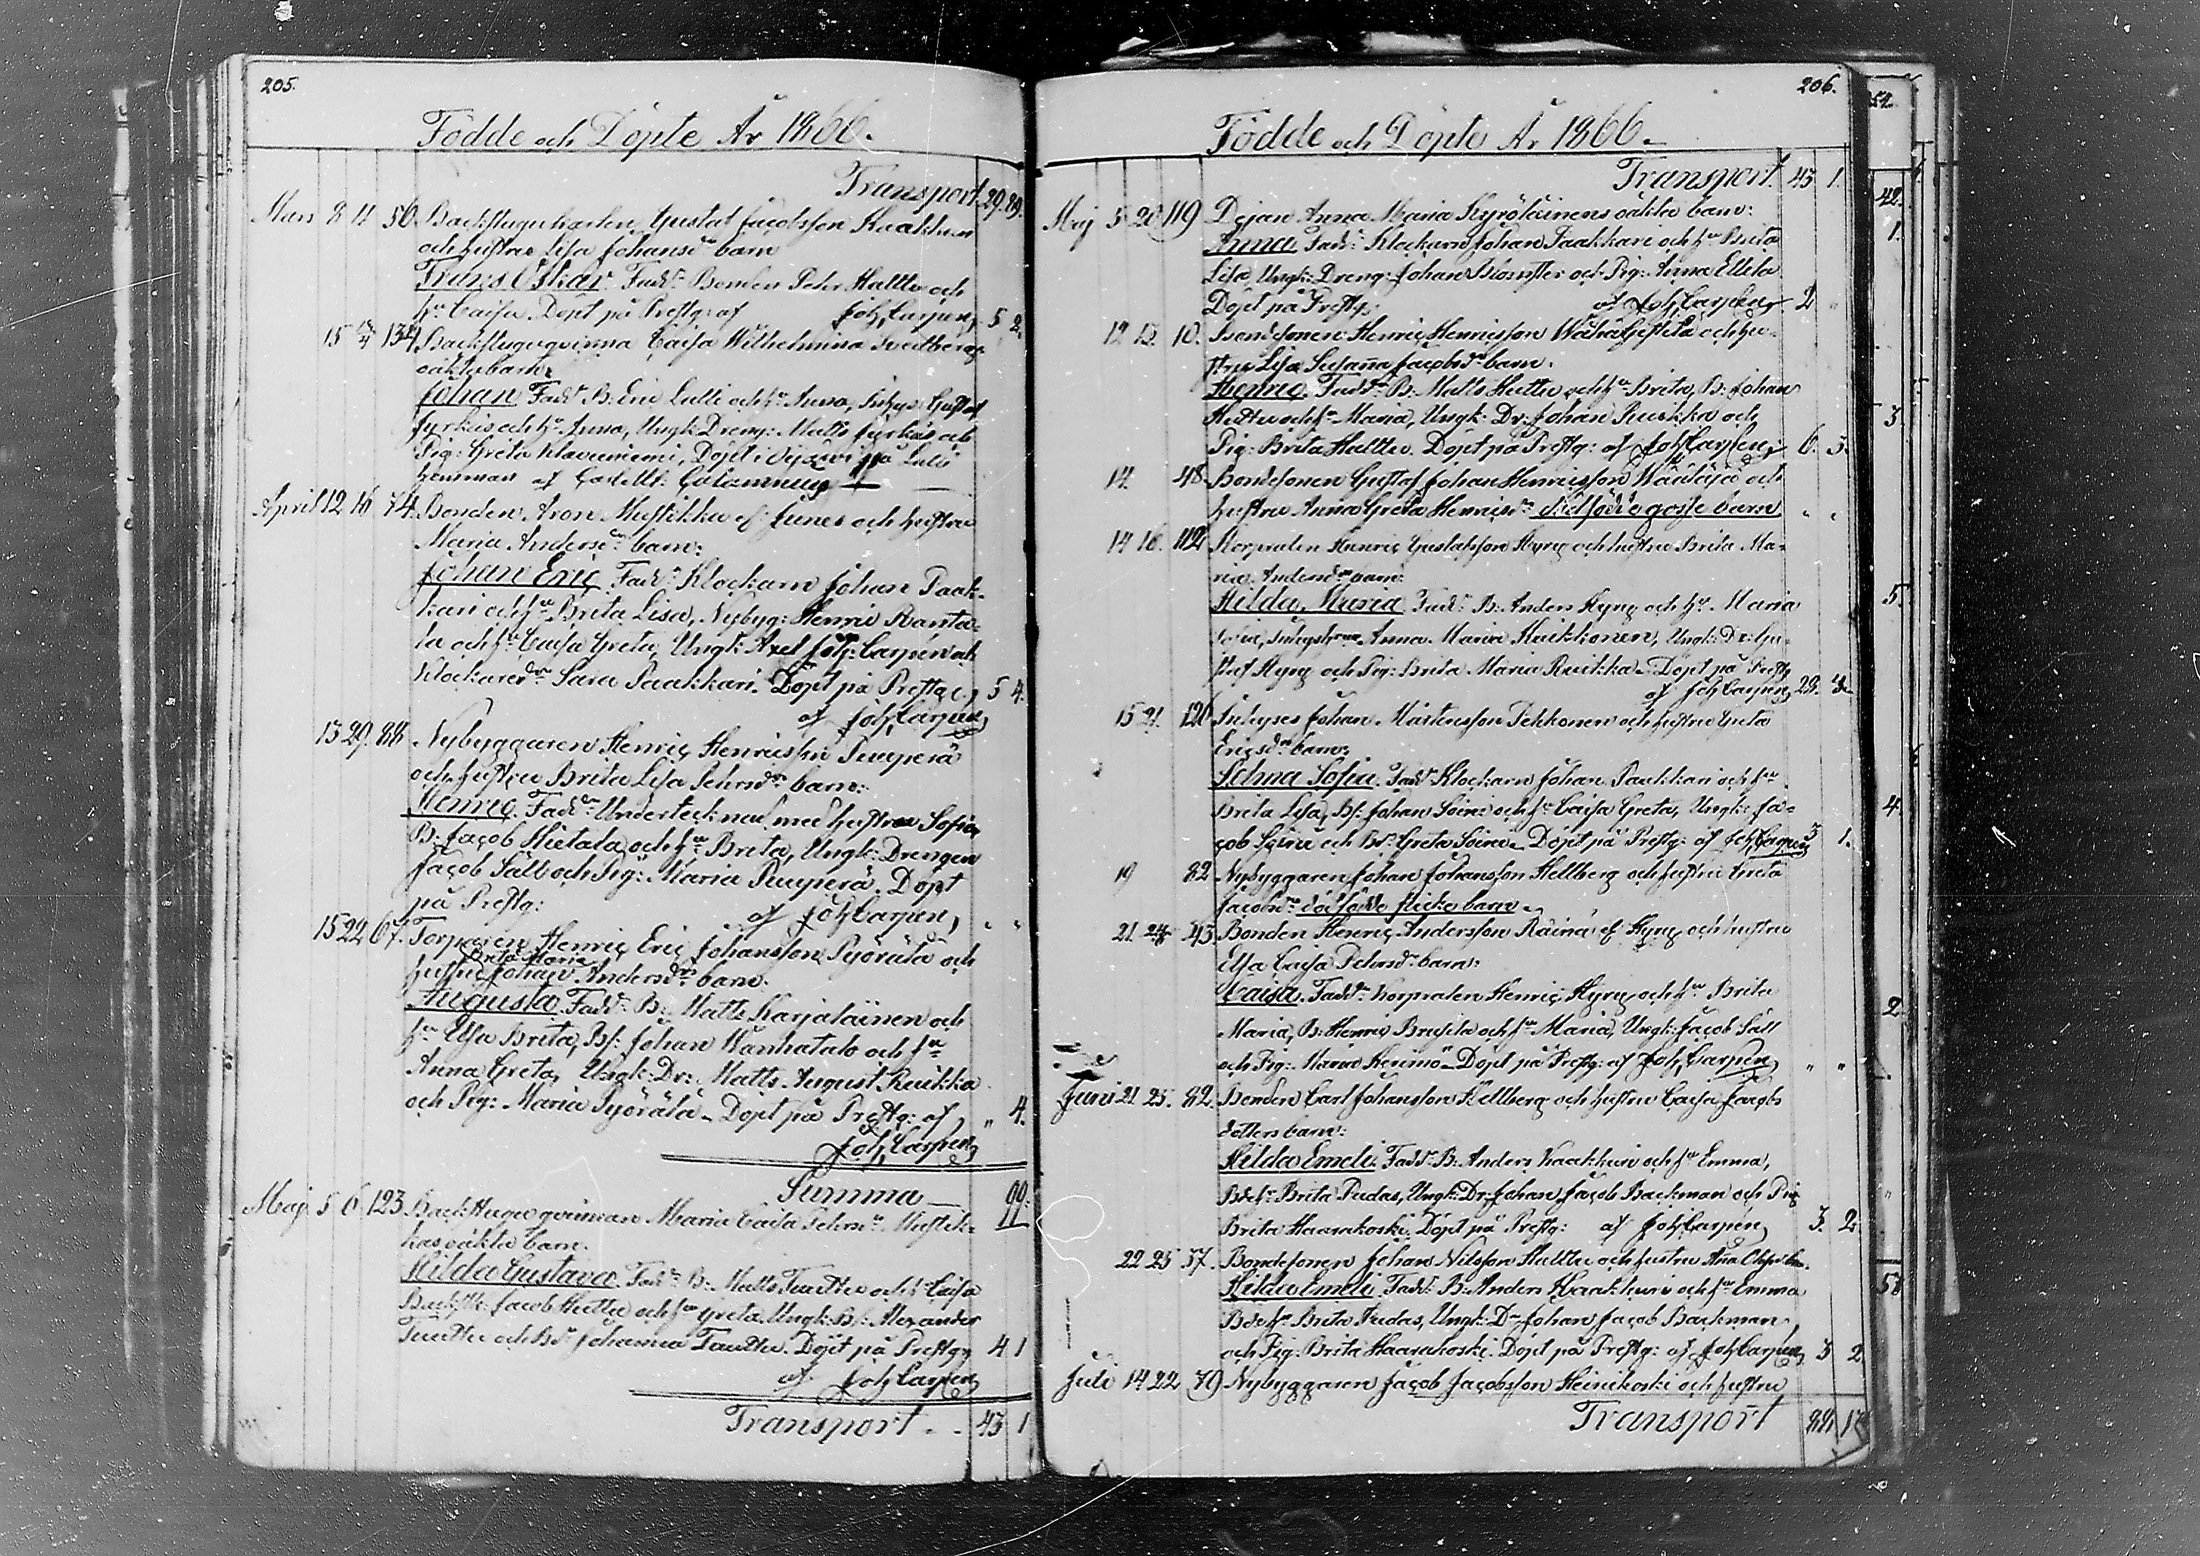 205.
Födde och Döpte År 1866.
Transport 29. 89.
Mars 8 11 56. Backstugukarlen Gustaf Jacobsson Kaakkuri
och hustru Lisa Johansdr barn
Frans Oskar. Faddr Bonden Pehr Hatttu och
hu Caisa. Döpt på Prestg: af Joh, Carpén, 5 2.
15 134 Backstuguqvinna Caisa Wilhelmina Svedbergs
oäkta barn:
Johan. Faddr B. Eric Lulli och hu Anna, Inhys: Gustaf
Jyrkäs och hu Anna, Ungk. Dreng: Matts Jyrkäs och
Pig: Greta Klaveniemi, Döpt i på
hemman af
April 12 16 74. Bonden Aron Mustikka af Junes och hustru
Maria Andersdr barn:
Johan Eric. Faddr Klockarn Johan Paak-
kari och hu Brita Lisa, Nybyg: Henric Ranta-
la och hu Caisa Greta, Ungk: Axel Joh: Carpén och
Klockaredr Sara Paakkari. Döpt på Prestg: 5 4.
af Joh, Carpén,
13 29. 88 Nybyggaren Henric Henricssn Ruuperä
och hustru Brita Lisa Pehrsdr barn:
Henric. Faddr Undertecknad med hustru Sofia,
B: Jacob Hietala och hu Brita, Ungk: Drengen
Jacob Säll och Pig: Maria Ruuperä. Döpt
på Prestg: af Joh, Carpén, " "
15 22 67. Torparen Henric Eric Johansson Pyörälä och
Brita Maria
hustru Johan Andersdr barn:
Augusta. Faddr B: Matts Karjalainen och
hu Elsa Brita, Bs: Johan Wanhatalo och hu
Anna Greta, Ungk: Dr: Matts August Ruikka
och Pig: Maria Pyörälä. Döpt på Prestg: af " 4.
Joh, Carpén,
Summa 99.
Maj 5 6 123 Backstuguqvinnan Maria Caisa Pehrsdr Mustik-
kas oäkta barn.
Hilda Gustava. Faddr B: Matts Tuuttu och hu Caisa
Backstk: Jacob Huttu och hu Greta, Ungk: Bs: Alexander
Tuuttu och Bdr Johanna Tuuttu. Döpt på Prestg: 4 1
af Joh, Carpén,
Transport 43 1
206.
Födde och Döpte År 1866.
Transport. 43 1.
Maj 5 20 119 Dejan Anna Maria Kyröläinens oäkta barn:
Anna. Faddr Klockarn Johan Paakkari och hu Brita
Lisa, Ungk: Dreng: Johan Blomster och Pig: Anna Ellela
Döpt på Prestg: af Joh, Carpén, 2 "
12 13. 10. Bondesonen Henric Henricsson och hu-
stru Lisa Susanna Jacobsdr barn:
Henric. Faddr B: Matts Huttu och hu Brita, B: Johan
Huttu och hu Maria, Ungk: Dr: Johan Ruikka och
Pig: Brita Hatttu. Döpt på Prestg: af Joh, Carpén, 6. 3.
14 48 Bondesonen Gustaf Johan Henricsson och
hustru Anna Greta Henricsdr dödfödde gosse barn " "
14 16. 112 Korpralen Henric Gustafsson Kyrö och hustru Brita Ma-
ria Andersdr barn:
Hilda Maria. Faddr B: Anders Kyrö och hu Maria
Anna Maria Kuikkonen, Ungk: Dr: Gu-
staf Kyrö och Pig: Brita Maria Ruikka. Döpt på Prestg
af Joh, Carpén, 28. 8.
15 21. 120 Inhyses Johan Mårtensson Pekkonen och hustru Greta
Ericsdr barn:
Selma Sofia. Faddr Klockarn Johan Paakkari och hu
Brita Lisa, Bs: Johan Soini och hu Caisa Greta, Ungk: Ja-
cob Soini och Bdr Greta Soini. Döpt på Prestg: af Joh, Carpén, 3 1.
19 82 Nybyggaren Johan Johansson Hellberg och hustru Greta
Jacobsdr dödfödde flicke barn.
21 24 43 Bonden Henric Andersson Räinä af Kyrö och hustru
Elsa Caisa Pehrsdr barn:
Caisa. Faddr Korpralen Henric Kyrö och hu Brita
Maria, B: Henric och hu Maria, Ungk: Jacob Säll
och Pig: Maria Hermo. Döpt på Prestg: af Joh, Carpén, " "
Juni 21 25. 82. Bonden Carl Johansson Hellberg och hustru Caisa Jacobs
dotters barn:
Hilda Emeli. Faddr B: Anders Kaakkuri och hu Emma,
Bdehu Brita Pudas, Ungk: Dr: Johan Jacob Backman och Pig
Brita Haarakoski. Döpt på Prestg: af Joh, Carpén, 3. 2
22 25 37. Bondesonen Johan Nilsson Hatttu och hustru
Hilda Emeli. Faddr B: Anders Kaakkuri och hu Emma
Bdehu Brita Pudas, Ungk: Dr Johan Jacob Backman,
och Pig: Brita Haarakoski. Döpt på Prestg: af Joh, Carpén, 3 2
Juli 14 22 79 Nybyggaren Jacob Jacobsson Heinikoski och hustru
Transport 88 17